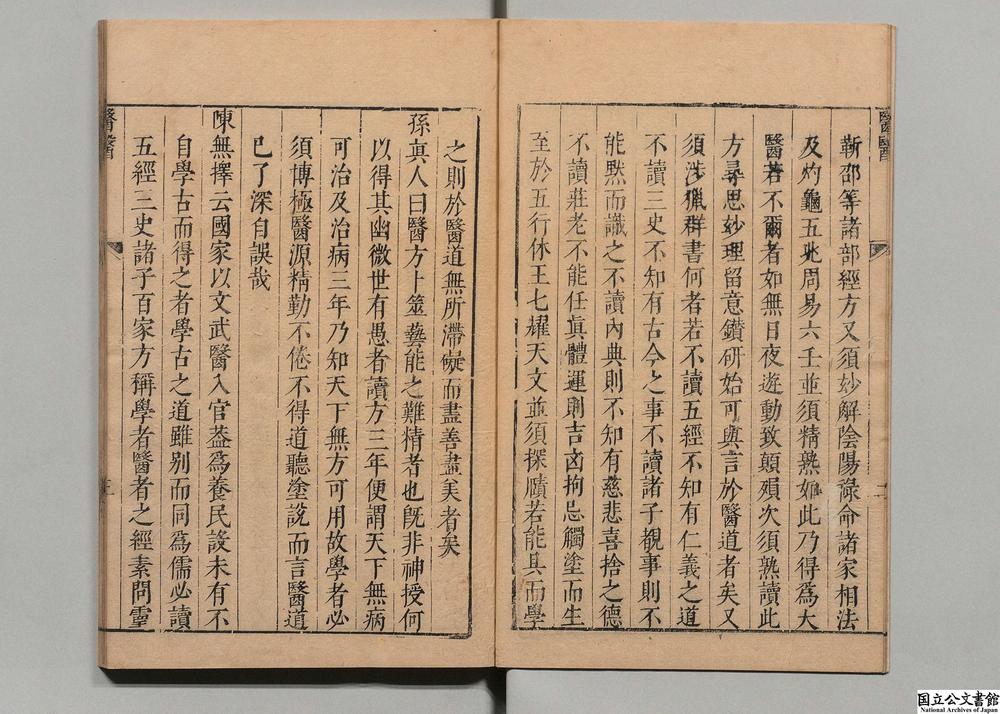 靳邵等諸部經方又須妙解陰陽祿命諸家相法
及灼龜五兆周易六壬並須精熟如此乃得爲大
醫若不爾者如無目夜遊動致顛殞次須熟讀此
方尋思妙理留意鑚研始可與言於醫道者矣又
須涉獵群書何者若不讀五經不知有仁義之道
不讀三史不知有古今之事不讀諸子覩事則不
能默而識之不讀內典則不知有慈悲喜捨之德
不讀莊老不能任眞體運則吉㐫拘忌觸塗而生
至於五行休王七耀天文並須探賾若能具而學
之則於醫道無所滯礙而盡善盡美者矣
孫眞人曰醫方卜筮藝能之難精者也旣非神授何
以得其幽微世有愚者讀方三年便謂天下無病
可治及治病三年乃知天下無方可用故學者必
須博極醫源精勤不倦不得道聽塗說而言醫道
已了深自誤哉
陳無擇云國家以文武醫入官葢爲養民設未有不
自學古而得之者學古之道雖别而同爲儒必讀
五經三史諸子百家方稱學者醫者之經素問靈
国立公文書館
National Archives of Japan